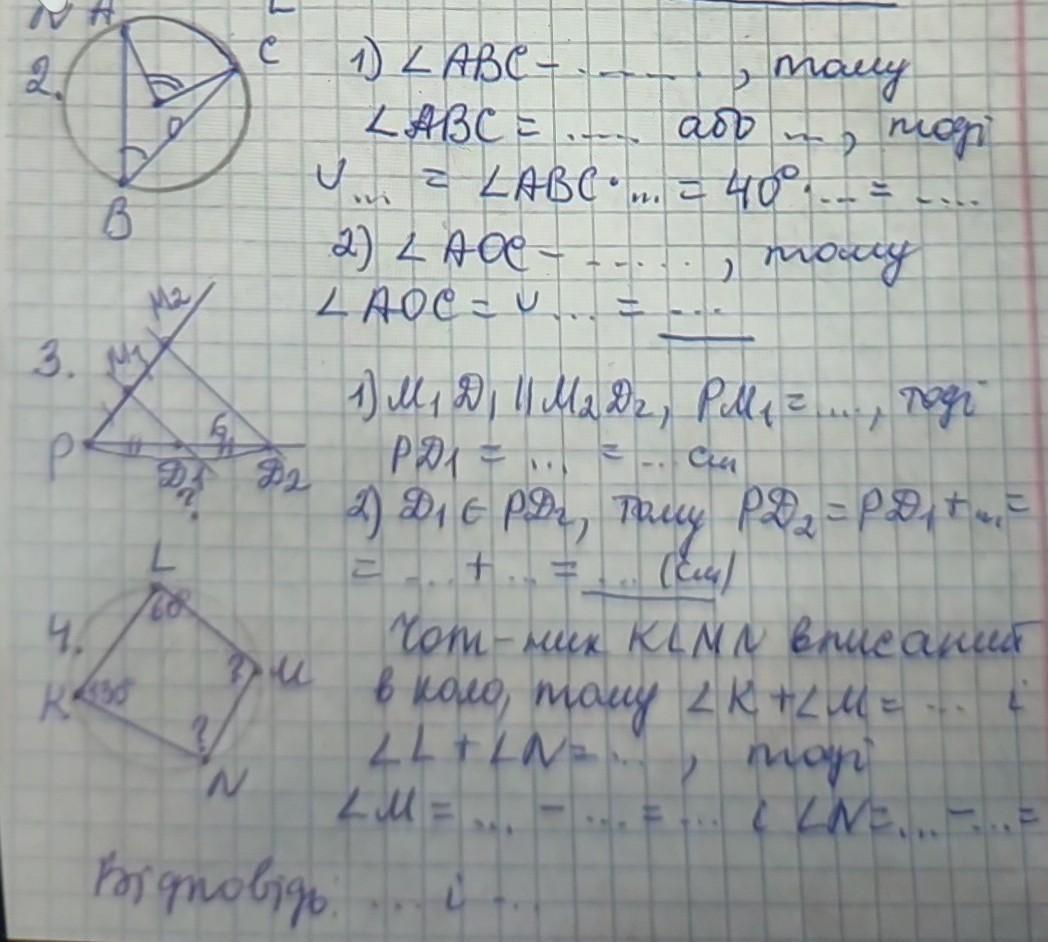 N A L
2. C
O
B
1) ∠ABC - ......., тому
∠ABC = ..... або ..., тоді
∪... = ∠ABC · ... = 40° · ... = .....
2) ∠AOC - ......., тому
∠AOC = ∪ ... = ...
3. M2
M1
P D1 5 D2
?
1) M1D1 || M2D2, PM1 = ..., тоді
PD1 = ... = ... см
2) D1 ∈ PD2, тому PD2 = PD1 + ... =
= ... + ... = ... (см)
4. L
K M
? ?
N
Чот-ник KLMN вписаний
в коло, тому ∠K + ∠M = ... і
∠L + ∠N = ..., тоді
∠M = ... - ... = ... і ∠N = ... - ... =
Відповідь: ... і ...